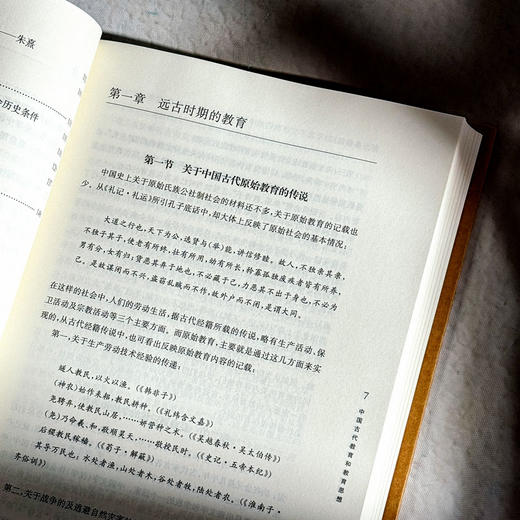 ——朱熹
会历史条件
第一章　远古时期的教育
第一节　关于中国古代原始教育的传说
中国史上关于原始氏族公社制社会的材料还不多，关于原始教育的记载也
少。从《礼记·礼运》所引孔子底话中，却大体上反映了原始社会的基本情况：
大道之行也，天下为公，选贤与（举）能，讲信修睦。故人，不独亲其亲，
不独子其子，使老有所终，壮有所用，幼有所长，矜寡孤独废疾者皆有所养，
男有分，女有归；货恶其弃于地也，不必藏于己，力恶其不出于身也，不必为
己。是故谋闭而不兴，盗窃乱贼而不作，故外户而不闭，是谓大同。
在这样的社会中，人们的劳动生活，据古代经籍所载的传说，略有生产活动，保
卫活动及宗教活动等三个主要方面。而原始教育，主要就是通过这几方面来实
现的，从古代经籍传说中，也可看出反映原始教育内容的记载：
第一，关于生产劳动技术经验的传递：
燧人教民，以火以渔。（《韩非子》）
（神农）始作耒耜，教民耕种。（《礼纬含文嘉》）
尧聘弃，使教民山居，……妍营种之术。（《吴越春秋·吴太伯传》）
（尧）乃命羲、和，敬顺昊天，……敬授民时。（《史记·五帝本纪》）
后稷教民稼穑。（《荀子·解蔽》）
其导万民也：水处者渔，山处者木，谷处者牧，陆处者农。（《淮南子·
务俗训》）
第二，关于战争的及逃避自然灾害
7
中国古代教育和教育思想